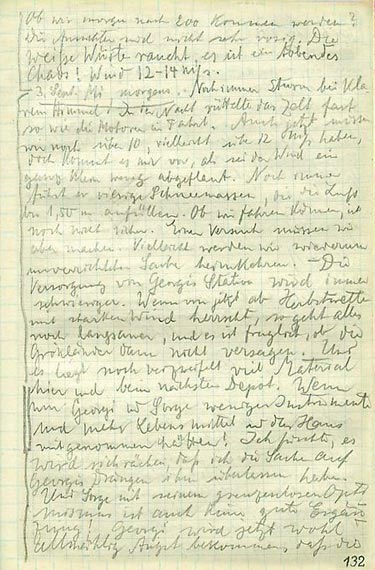 Ob wir morgen nach 200 kommen werden?
Die Aussichten sind nicht sehr rosig. Die
weiße Wüste raucht, es ist ein tobendes
Chaos! Wind 12-14 m/s.
3. Sept. morgens. Noch immer Sturm bei kla
rem Himmel. In der Nacht rüttelte das Zelt fast
so wie die Motoren in Fahrt. Auch jetzt müssen
wir noch über 10, vielleicht über 12 m/s haben,
doch kommt es mir vor, als sei der Wind ein
ganz klein wenig abgeflaut. Noch immer
führt er riesige Schneemassen, die die Luft
bis 1,50 m anfüllen. Ob wir fahren können, ist
noch nicht sicher. Einen Versuch müssen wir
aber machen. Vielleicht werden wir wiederum
unverrichteter Sache heimkehren. - Die
Versorgung von Georgis Station wird immer
schwieriger. Wenn von jetzt ab Herbstwetter
mit starkem Wind herrscht, so geht alles
noch langsamer, und es ist fraglich, ob die
Grönländer dann nicht versagen. Und
es liegt noch verzweifelt viel Material
hier und beim nächsten Depot. Wenn
nur Georgi u Sorge weniger Instrumente
und mehr Lebensmittel u das Haus
mitgenommen hätten! Ich fürchte, es
wird sich rächen, daß ich die Sache auf
Georgis Drängen ihm überlassen habe.
Und Sorge mit seinem grenzenlosen Opti
mismus ist auch keine gute Ergän
zung! Georgi wird jetzt wohl
allmählich Angst bekommen, daß die
132